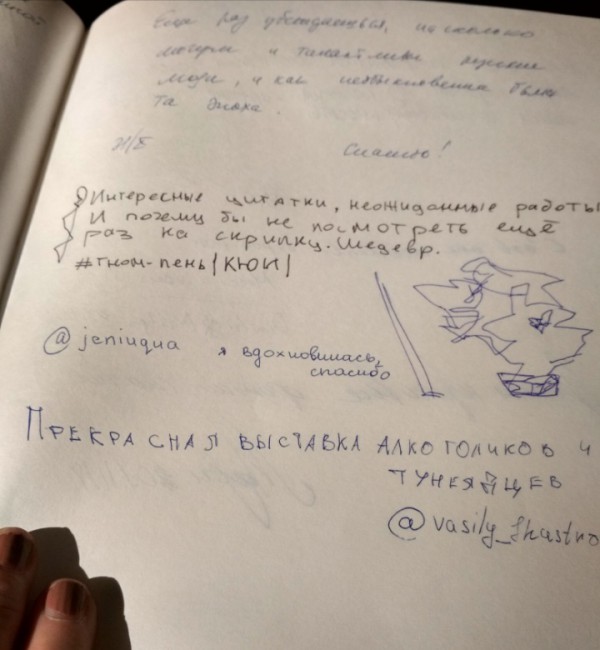 Ещё раз убеждаешься, насколько
и талантливы русские
люди, и как необыкновенна была
та эпоха.
Н/Б Спасибо!
Интересные цитатки, неожиданные работы
И почему бы не посмотреть ещё
раз на скрипку. Шедевр.
#гном-пень|КЮИ|
@jeniuqua я вдохновилась,
спасибо
Прекрасная выставка алкоголиков и
тунеядцев
@vasily_